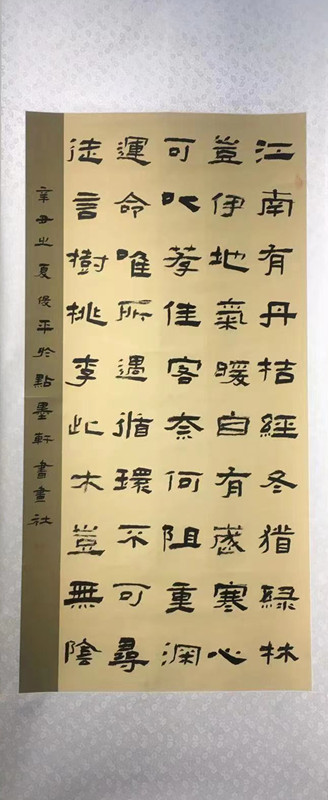 江南有丹桔經冬猶緑林
豈伊地氣暖自有歲寒心
可以荐佳客奈何阻重深
運命唯所遇循環不可尋
徒言樹桃李此木豈無陰
辛丑之夏俊平於點墨軒書畫社